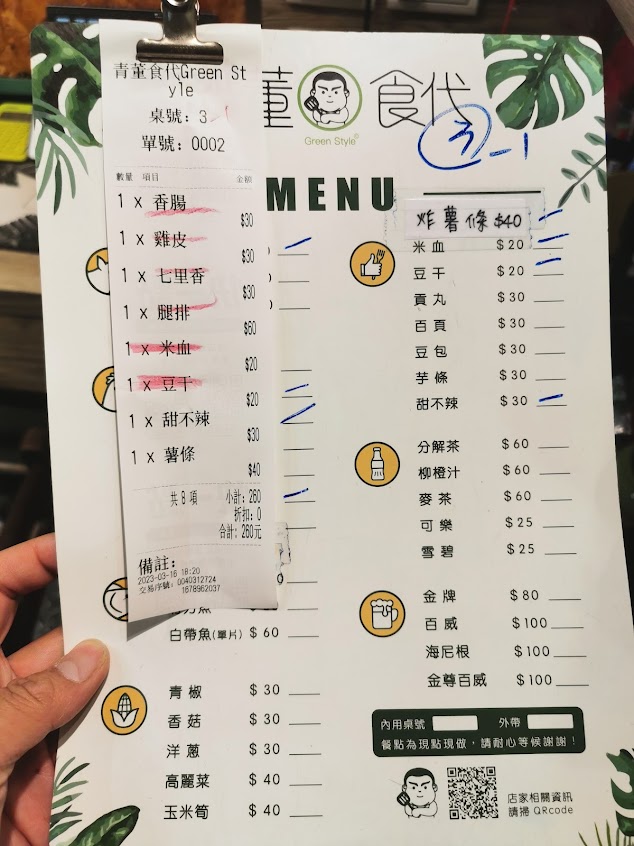 青董食代Green St
yle
桌號：3
單號：0002
數量 項目 金額
1 x 香腸
$30
1 x 雞皮
$30
1 x 七里香
$30
1 x 腿排
$60
1 x 米血
$20
1 x 豆干
$20
1 x 甜不辣
$30
1 x 薯條
$40
共 8 項 小計：260
折扣：0
合計：260元
備註：
2023-03-16 18:20
交易序號：0040312724
1678962037
董 食代
Green Style
3-1
MENU
炸薯條 $40
米血 $20
豆干 $20
貢丸 $30
百頁 $30
豆包 $30
芋條 $30
甜不辣 $30
分解茶 $60
柳橙汁 $60
麥茶 $60
可樂 $25
雪碧 $25
金牌 $80
百威 $100
海尼根 $100
金尊百威 $100
白帶魚(單片) $60
青椒 $30
香菇 $30
洋蔥 $30
高麗菜 $40
玉米筍 $40
內用桌號 外帶
餐點為現點現做，請耐心等候謝謝！
店家相關資訊
請掃 QRcode